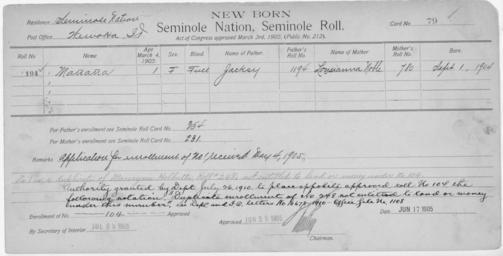 NEW BORN
Residence Seminole Nation
Seminole Nation, Seminole Roll.
Card No. 79
Post Office Wewoka, I.T.
Act of Congress approved March 3rd, 1905, (Public No. 212).
Roll No. Name Age March 4, 1905. Sex. Blood. Name of Father. Father's Roll No. Name of Mother Mother's Roll No. Born.
1 F Full Jacksy 1194 Louisanna Noble 780 Sept 1, 1904
For Father's enrollment see Seminole Roll Card No. 354
For Mother's enrollment see Seminole Roll Card No. 231
Remarks Application for enrollment of No 1 received May 4, 1905.
Authority granted by Dept. July 26, 1910, to place opposite approved roll No 104 the
following notation: "Duplicate enrollment of No 248 not entitled to land or money
under this number,"
Enrollment of No. 104 Approved
By Secretary of Interior
Approved
Chairman.
Date JUN 17 1905